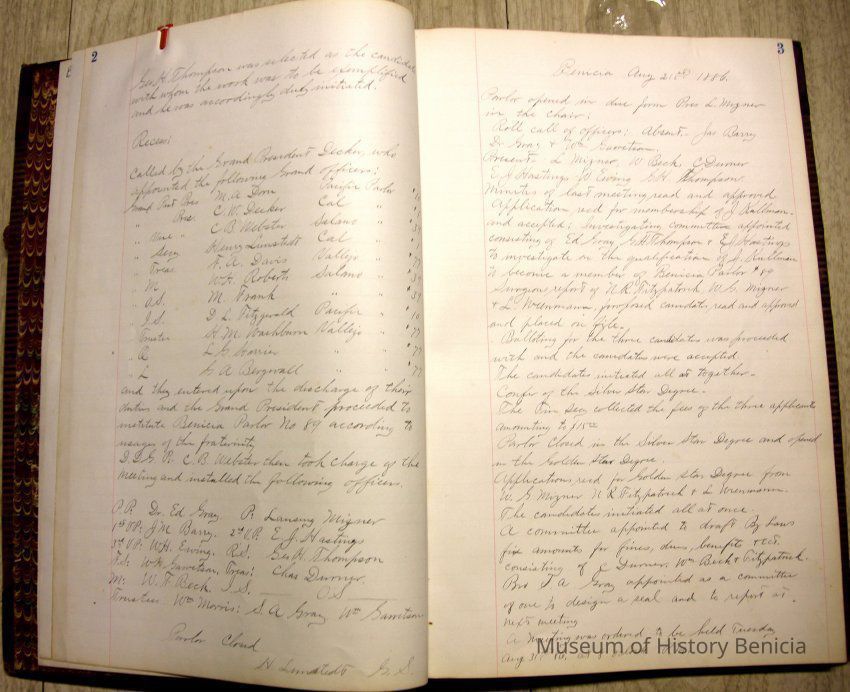 2
Geo. H. Thompson was selected as the candidate
with whom the work was to be exemplified
and he was accordingly duly initiated.
Recess:
Called by the Grand President Decker, who
appointed the following Grand officers:
Grand Past Pres M. A. Dorn Pacific Parlor #10
" Pres. C. W. Decker Cal "
" Vice " C. B. Webster Solano " #39
" Secy Henry Lunstedt Cal "
" Treas F. A. Davis Vallejo " #77
" M W. H. Roberts Solano " #39
" A.S. M. Frank " " #39
" I.S. D. L. Fitzgerald Pacific " #10
" Trustee H. M. Washburn Vallejo " #77
" " " #77
" G. A. Bergwall " " #77
and they entered upon the discharge of their
duties and the Grand President proceeded to
institute Benicia Parlor No 89 according to
usages of the fraternity
D.D.G.P. C. B. Webster then took charge of the
meeting and installed the following officers.
P.P. Dr. Ed Gray P. Lansing Mizner
1st V.P. J. M. Barry. 2nd V.P. E. J. Hastings
3rd V.P. W. H. Ewing. R.S. Geo. H. Thompson
F.S. Wm Garretson. Treas: Chas Durner.
M: W. F. Beck. I.S. O.S.
Trustees Wm Morris: S. A Gray Wm Garretson
Parlor Closed
H Lunstedt G. S.
3
Benicia Aug 21st 1886.
Parlor opened in due form Pres L. Mizner
in the chair:
Roll call of officers: Absent. Jas Barry
Dr. Gray & Wm Garretson.
Present. L Mizner, W Beck. C Durner
E J Hastings W Ewing G. H. Thompson.
Minutes of last meeting read and approved
Application recd for membership of J. Kullman
and accepted: Investigating committee appointed
consisting of Ed Gray, G. H. Thompson & E J Hastings
to investigate in the qualification of J. Kullman
to become a member of Benicia Parlor #89
Surgions report of N. R. Fitzpatrick W. G. Mizner
& L. Wrenmann, proposed candidates, read and approved
and placed on fyle.
Balloting for the three candidates was proceeded
with and the candidates were accepted.
The candidates initiated all at together.
Confer of the Silver Star Degree.
The Fin Secy collected the fees of the three applicants
amounting to $15.00
Parlor Closed in the Silver Star Degree and opened
in the Golden Star Degree.
Applications recd for Golden Star Degree from
W. G Mizner N R Fitzpatrick & L Wrenmann.
The candidates initiated all at once.
A committee appointed to draft By Laws
fix amounts for fines, dues, benefits &ct.
consisting of C Durner. Wm Beck & Fitzpatrick.
Bro S A Gray appointed as a committee
of one to design a seal and to report at
next meeting
A Meeting was ordered to be held Tuesday
Aug 31. 86. at 8
Museum of History Benicia